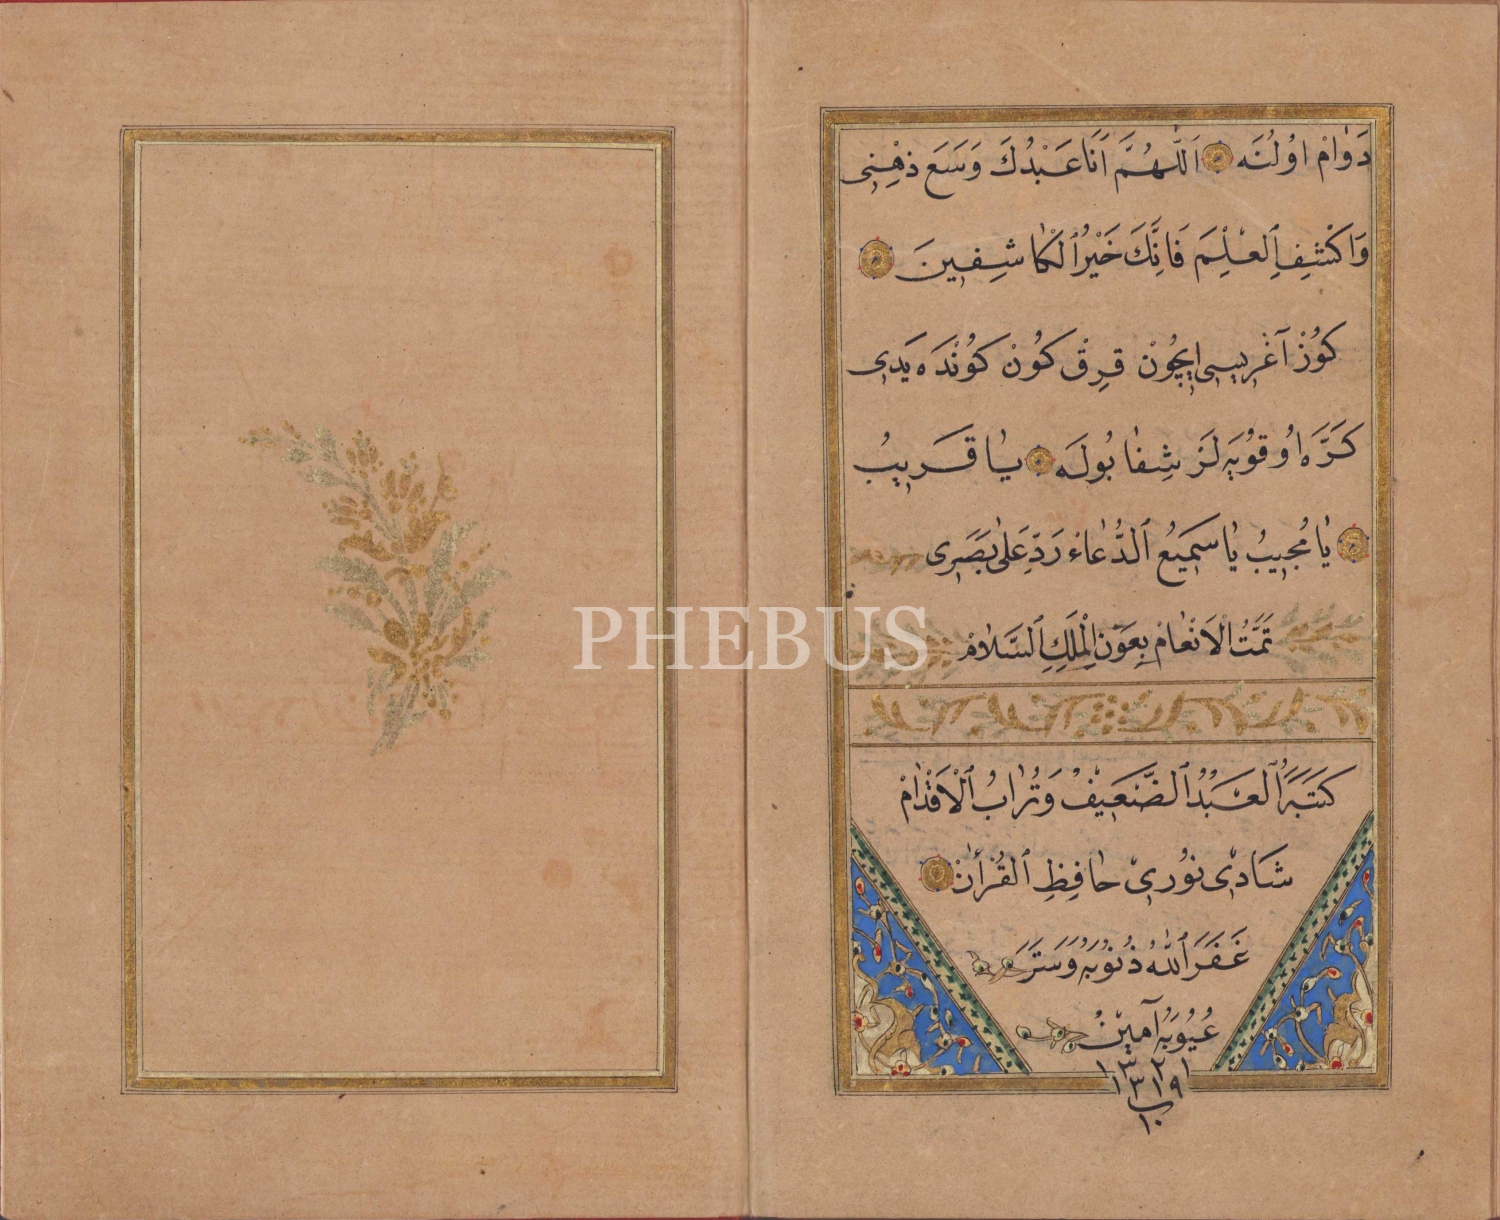 دَوَامْ اوُلُنَه اَللّٰهُمَّ اَنَا عَبْدُكَ وَسَعَ ذِهْنِى
وَاكْشِفِ الْعِلْمَ فَاِنَّكَ خَيْرُ الْكَاشِفِينَ
كوُزْ آغْرِيسِى اِيچُونْ قِرِقْ كوُنْ كوُنْدَه يَدِى
كَرَّه اوُقوُيَه لَرْ شِفَا بُولَه يَا قَرِيبُ
يَا مُجِيبُ يَا سَمِيعُ الدُّعَاءْ رَدِّ عَلٰى بَصَرِى
تَمَّتْ الْاَنْعَامْ بِعَوْنِ الْمَلِكِ السَّلَامْ
PHEBUS
كَتَبَهُ الْعَبْدُ الضَّعِيفْ وَتُرَابُ الْاَقْدَامْ
شَادِى نوُرِى حَافِظِ الْقُرْاٰنْ
غَفَرَ اللّٰهُ ذُنوُبَهُ وَسَتَرَ
عُيُوبَهُ آمِينْ